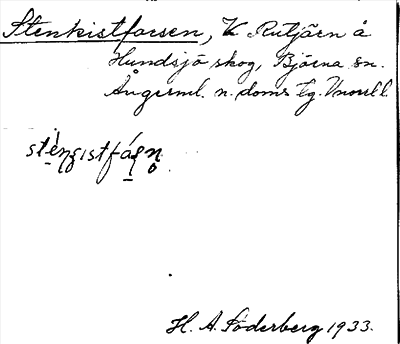 Stenkistforsen, V Rutjärn å
Hundsjö skog, Björna sn.
Ångerml. n. doms lg. Vnorrl l.
H. A. Söderberg 1933.